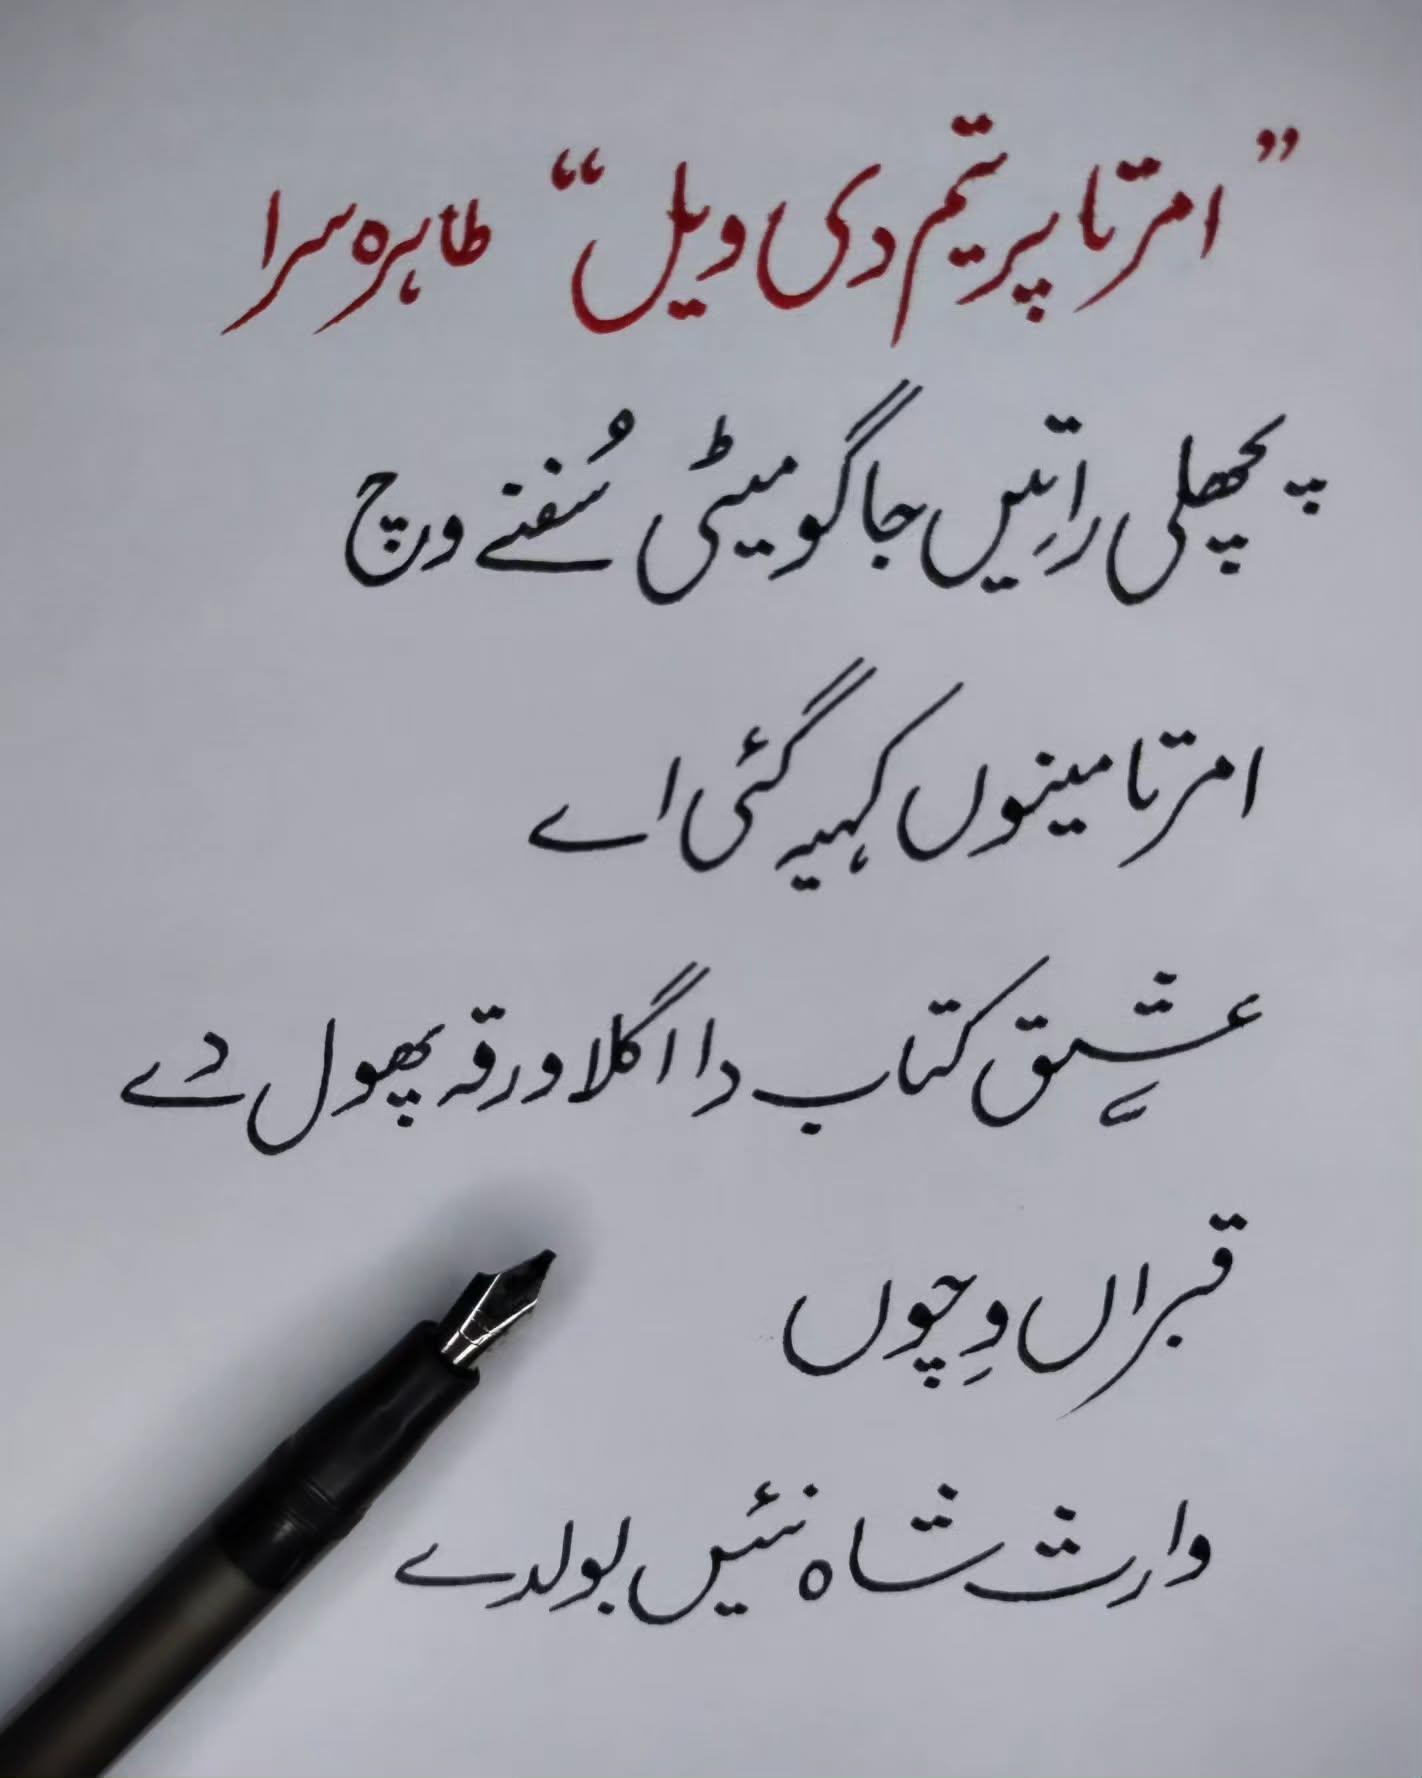 ”امرتا پریتم دی ویل“ طاہرہ سرا
پچھلی راتیں جاگو میٹی سُفنے وِچ
امرتا مینوں کہیہ گئی اے
عشق کتاب دا اگلا ورقہ پھول دے
قبراں وِچوں
وارث شاہ نئیں بولدے